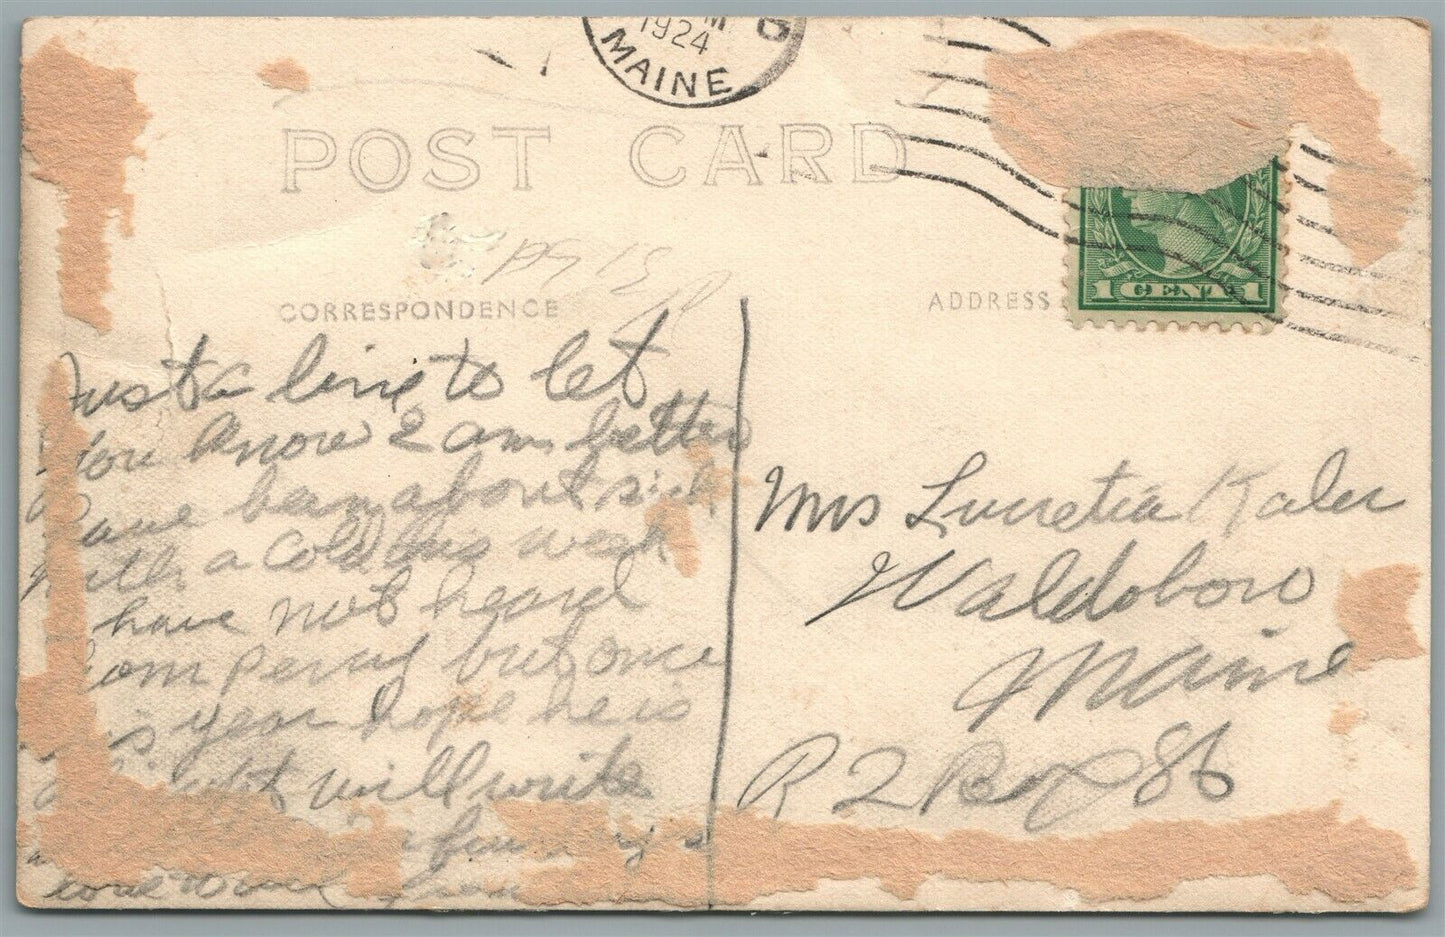 1924
MAINE
POST CARD
CORRESPONDENCE
ADDRESS
1 CENT 1
Just a line to let
You know I am better
have been about sick
with a cold this week
have not heard
from percy but once
this year hope he is
will write
love to each from
Mrs Lucretia Kaler
Waldoboro
Maine
R 2 Box 86